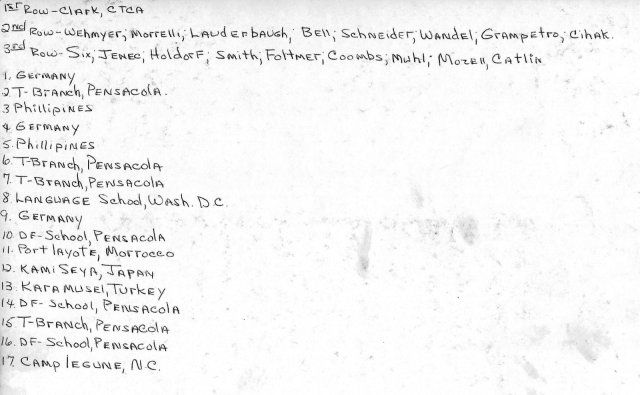 1st Row-Clark, CTCA
2nd Row-Wehmyer; Morrelli; Lauderbaugh; Bell; Schneider; Wandel; Grampetro; Cihak.
3rd Row-Six; Jenec; Holdorf; Smith; Foltmer; Coombs; Muhl; Mozell, Catlin
1. Germany
2. T-Branch, Pensacola.
3 Phillipines
4 Germany
5. Phillipines
6. T-Branch, Pensacola
7. T-Branch, Pensacola
8. Language School, Wash. D.C.
9. Germany
10. DF-School, Pensacola
11. Port layote, Morrocco
12. Kami Seya, Japan
13. Karamusel, Turkey
14. DF-School, Pensacola
15 T-Branch, Pensacola
16. DF-School, Pensacola
17. Camp legune, N.C.